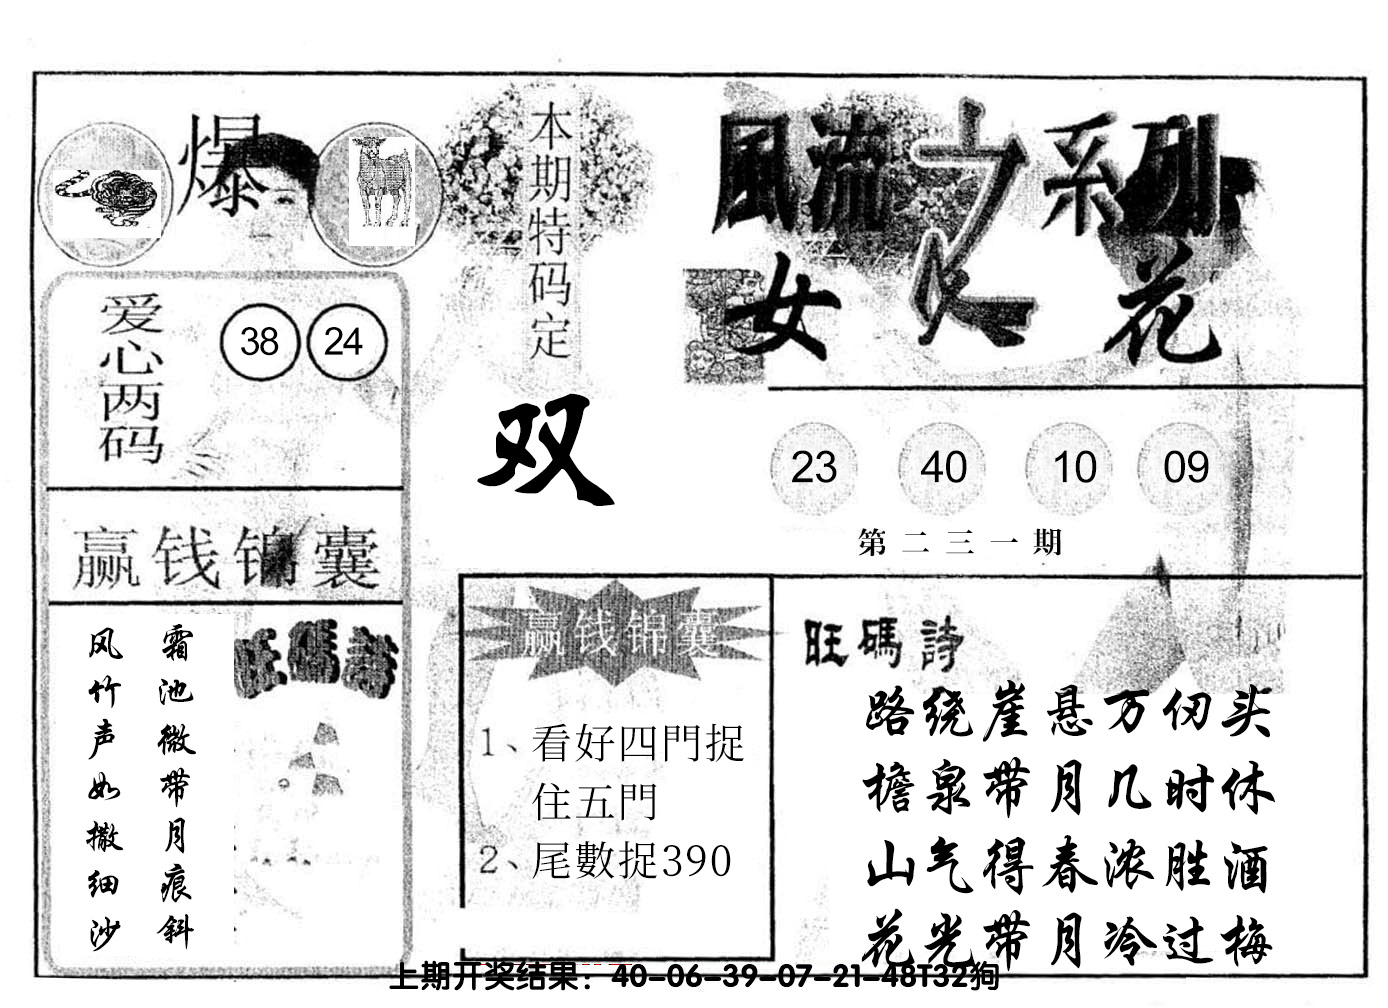 爆
本期特码定
双
爱心两码
38 24
赢钱锦囊
霜池微带月痕斜
风竹声如撒细沙
旺碼詩
風流之系列
女人花
23 40 10 09
第二三一期
赢钱锦囊
1、看好四門捉
住五門
2、尾數捉390
旺碼詩
路绕崖悬万仞头
檐泉带月几时休
山气得春浓胜酒
花光带月冷过梅
上期开奖结果：40-06-39-07-21-48T32狗